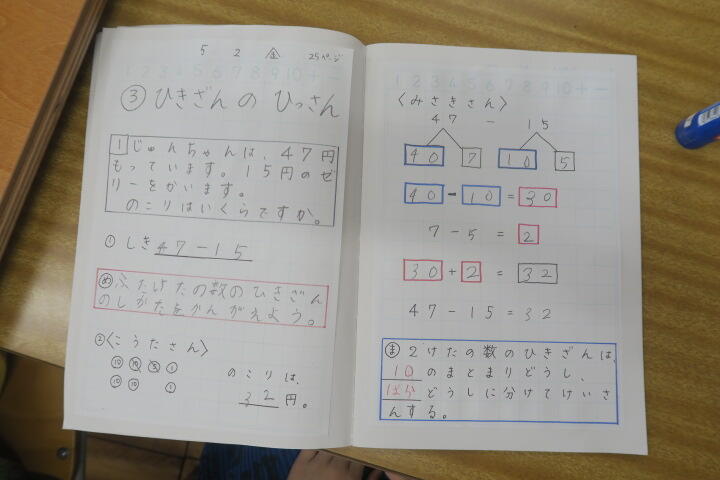 5 2 金 25ページ
③ ひきざんの ひっさん
1 じゅんちゃんは、47円
もっています。15円のゼ
リーをかいます。
のこりはいくらですか。
① しき 47-15
め ふたけたの数のひきざん
のしかたをかんがえよう。
②〈こうたさん〉
10 10 5 1
10 10 1
のこりは、
32円。
1 2 3 4 5 6 7 8 9 10 + -
〈みさきさん〉
47 - 15
40 7 10 5
40 - 10 = 30
7 - 5 = 2
30 + 2 = 32
47 - 15 = 32
ま 2けたの数のひきざんは、
10のまとまりどうし、
ばらどうしに分けてけいさ
んする。